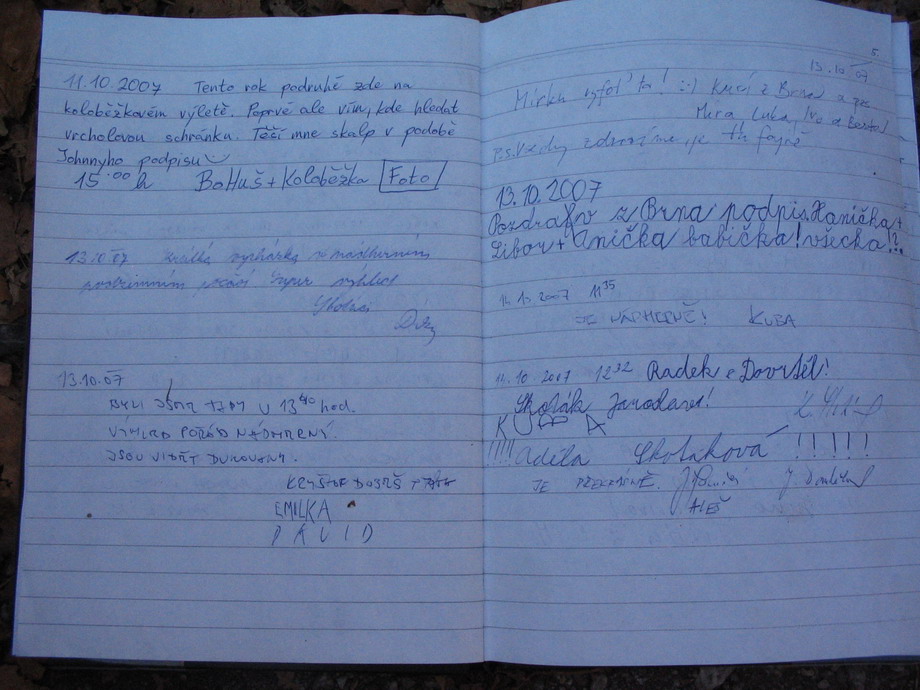 11.10.2007 Tento rok podruhé zde na
koloběžkovém výletě. Poprvé ale vím, kde hledat
vrcholovou schránku. Těší mne skalp v podobě
Johnnyho podpisu
15.00 h BoHuš + Koloběžka Foto
13.10.07 Krátká vycházka v nádherném
podzimním počasí Super výhled
13.10.07
BYLI JSME TADY V 13 40 hod.
VÝHLED POŘÁD NÁDHERNÝ.
JSOU VIDĚT DUKOVANY.
KRYŠTOF DOBEŠ + TÁTA
EMILKA
DAVID
5.
13.10.07
Mirku vyfoť to! :-) z Brna
Míra Luka, Iva
P.S. Všechny zdravíme, je fajně
13.10.2007
Pozdrav z Brna podpis. Hanička +
Libor + Anička babička! všecka!?
14.10.2007 11 35
JE NÁDHERNĚ! KUBA
14.10.2007 12 32 Radek z Dovrtěl!
Skoták Jaroslav!
KUBA
!!!! Adéla Skotáková !!!!!
JE PŘEKRÁSNĚ.
ALEŠ